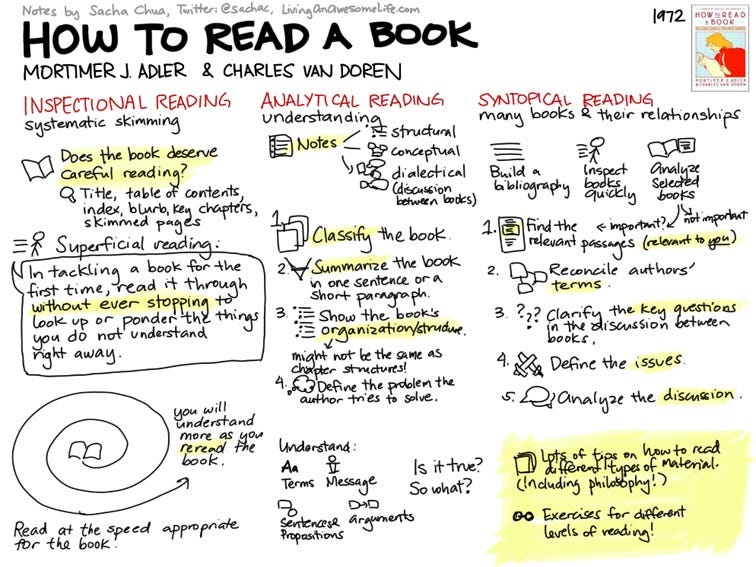 Notes by Sacha Chua, Twitter: @sachac, LivingAnAwesomeLife.com
HOW TO READ A BOOK
MORTIMER J. ADLER & CHARLES VAN DOREN
1972
HOW TO READ
A BOOK
MORTIMER J. ADLER
& CHARLES VAN DOREN
INSPECTIONAL READING
systematic skimming
Does the book deserve
careful reading?
Title, table of contents,
index, blurb, key chapters,
skimmed pages
Superficial reading:
In tackling a book for the
first time, read it through
without ever stopping to
look up or ponder the things
you do not understand
right away.
you will
understand
more as you
reread the
book.
Read at the speed appropriate
for the book.
ANALYTICAL READING
understanding
Notes
structural
conceptual
dialectical
(discussion
between books)
1. Classify the book.
2. Summarize the book
in one sentence or a
short paragraph.
3. Show the book's
organization/structure.
might not be the same as
chapter structures!
4. Define the problem the
author tries to solve.
Understand:
Aa
Terms
Message
Sentences &
Propositions
arguments
Is it true?
So what?
SYNTOPICAL READING
many books & their relationships
Build a
bibliography
Inspect
books
quickly
Analyze
selected
books
important?
not important
1. Find the
relevant passages (relevant to you)
2. Reconcile authors'
terms.
3. ??? Clarify the key questions
in the discussion between
books.
4. Define the issues.
5. Analyze the discussion.
Lots of tips on how to read
different types of material.
(Including philosophy!)
Exercises for different
levels of reading!